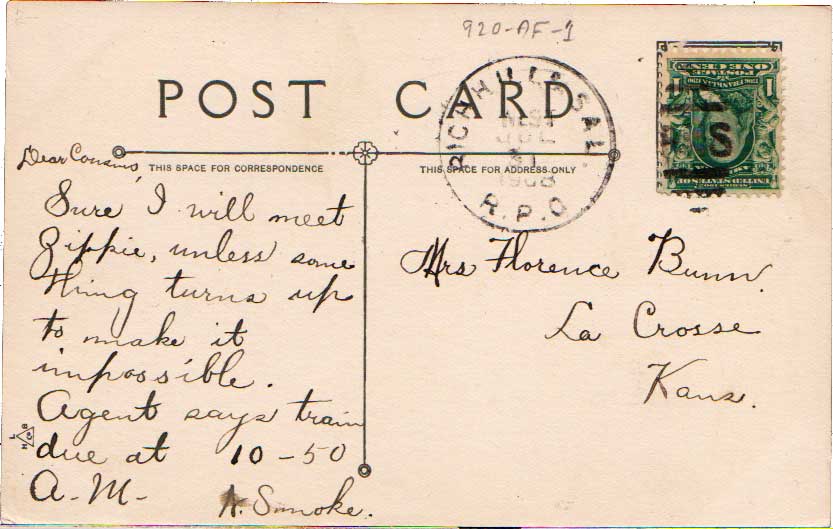 920-AF-1
POST CARD
THIS SPACE FOR CORRESPONDENCE
THIS SPACE FOR ADDRESS ONLY
RICH HILL & SAL.
JUL
31
1908
R.P.O
S
Dear Cousins
Sure I will meet
Zippie, unless some
thing turns up
to make it
impossible.
Agent says train
due at 10-50
A-M-
Smoke.
Mrs Florence Bunn.
La Crosse
Kans.
POSTAGE
ONE CENT
1
UNITED STATES